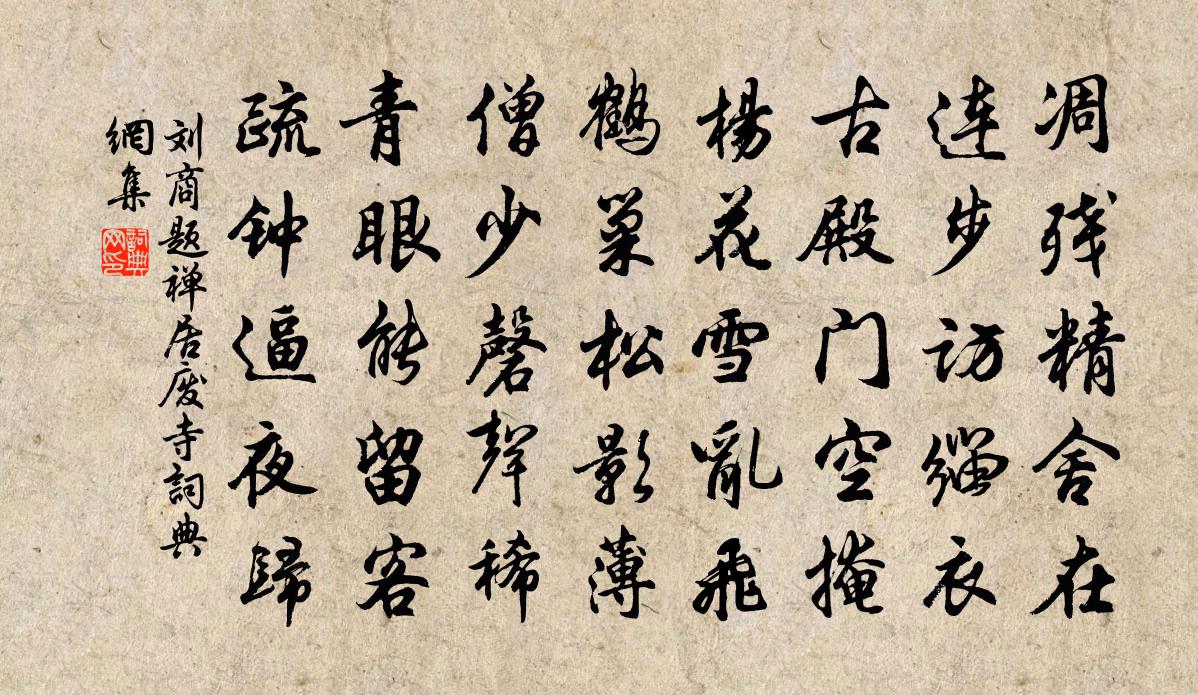 凋残精舍在
連步访缁衣
古殿门空掩
楊花雪亂飛
鶴巢松影薄
僧少磬聲稀
青眼能留客
疏钟逼夜歸
刘商题禅居废寺詞典
網集
詞典网印